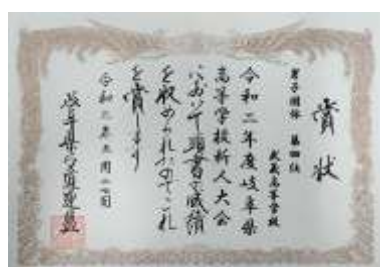 賞状
男子団体 第四位
武義高等学校
令和二年度岐阜県
高等学校新人大会
において頭書の成績
を収められたのでこれ
を賞します
令和
岐阜県弓道連盟